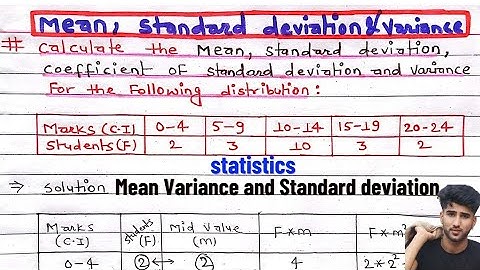 Mean, standard deviation & Variance
# Calculate the Mean, standard deviation,
coefficient of standard deviation and variance
For the Following distribution:
Marks (C.I) 0-4 5-9 10-14 15-19 20-24
Students (F) 2 3 10 3 2
statistics
→ solution Mean Variance and Standard deviation
Marks (C.I) Students (F) Mid Value (m) F×m F×m²
0-4 2 ↔ 2 4 2*2²